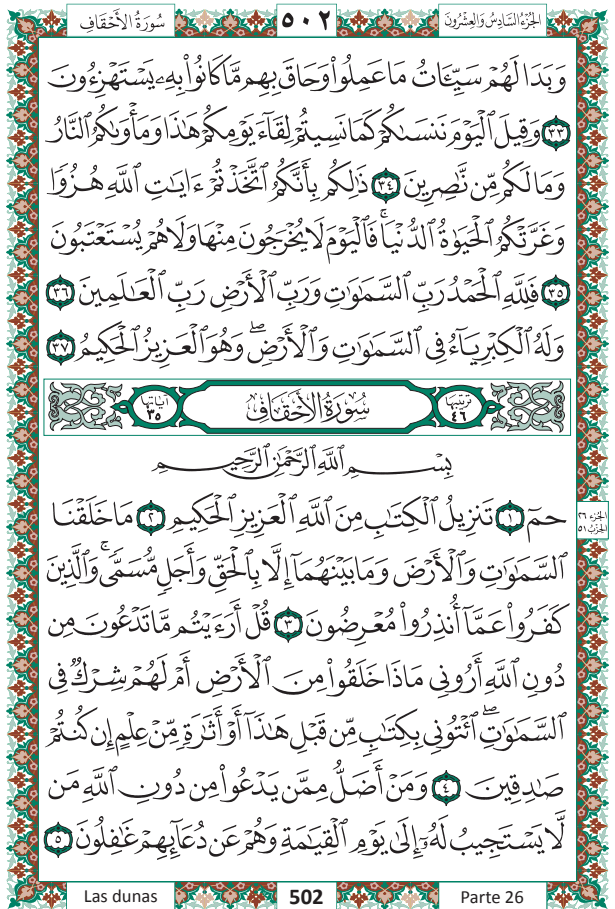 سُورَةُ الأَحْقَافِ ٥٠٢ الجُزْءُ السَّادِسُ وَالعِشْرُونَ
وَبَدَا لَهُمْ سَيِّـَٔاتُ مَا عَمِلُوا۟ وَحَاقَ بِهِم مَّا كَانُوا۟ بِهِۦ يَسْتَهْزِءُونَ
٣٣ وَقِيلَ ٱلْيَوْمَ نَنسَىٰكُمْ كَمَا نَسِيتُمْ لِقَآءَ يَوْمِكُمْ هَٰذَا وَمَأْوَىٰكُمُ ٱلنَّارُ
وَمَا لَكُم مِّن نَّٰصِرِينَ ٣٤ ذَٰلِكُم بِأَنَّكُمُ ٱتَّخَذْتُمْ ءَايَٰتِ ٱللَّهِ هُزُوًا
وَغَرَّتْكُمُ ٱلْحَيَوٰةُ ٱلدُّنْيَا ۚ فَٱلْيَوْمَ لَا يُخْرَجُونَ مِنْهَا وَلَا هُمْ يُسْتَعْتَبُونَ
٣٥ فَلِلَّهِ ٱلْحَمْدُ رَبِّ ٱلسَّمَٰوَٰتِ وَرَبِّ ٱلْأَرْضِ رَبِّ ٱلْعَٰلَمِينَ ٣٦
وَلَهُ ٱلْكِبْرِيَآءُ فِى ٱلسَّمَٰوَٰتِ وَٱلْأَرْضِ ۖ وَهُوَ ٱلْعَزِيزُ ٱلْحَكِيمُ ٣٧
ترتيبها ٤٦ سُورَةُ الأَحْقَافِ آياتها ٣٥
بِسْمِ ٱللَّهِ ٱلرَّحْمَٰنِ ٱلرَّحِيمِ
حمٓ ١ تَنزِيلُ ٱلْكِتَٰبِ مِنَ ٱللَّهِ ٱلْعَزِيزِ ٱلْحَكِيمِ ٢ مَا خَلَقْنَا
الجزء ٢٦
الحزب ٥١
ٱلسَّمَٰوَٰتِ وَٱلْأَرْضَ وَمَا بَيْنَهُمَآ إِلَّا بِٱلْحَقِّ وَأَجَلٍ مُّسَمًّى ۚ وَٱلَّذِينَ
كَفَرُوا۟ عَمَّآ أُنذِرُوا۟ مُعْرِضُونَ ٣ قُلْ أَرَءَيْتُم مَّا تَدْعُونَ مِن
دُونِ ٱللَّهِ أَرُونِى مَاذَا خَلَقُوا۟ مِنَ ٱلْأَرْضِ أَمْ لَهُمْ شِرْكٌ فِى
ٱلسَّمَٰوَٰتِ ۖ ٱئْتُونِى بِكِتَٰبٍ مِّن قَبْلِ هَٰذَآ أَوْ أَثَٰرَةٍ مِّنْ عِلْمٍ إِن كُنتُمْ
صَٰدِقِينَ ٤ وَمَنْ أَضَلُّ مِمَّن يَدْعُوا۟ مِن دُونِ ٱللَّهِ مَن
لَّا يَسْتَجِيبُ لَهُۥٓ إِلَىٰ يَوْمِ ٱلْقِيَٰمَةِ وَهُمْ عَن دُعَآئِهِمْ غَٰفِلُونَ ٥
Las dunas 502 Parte 26